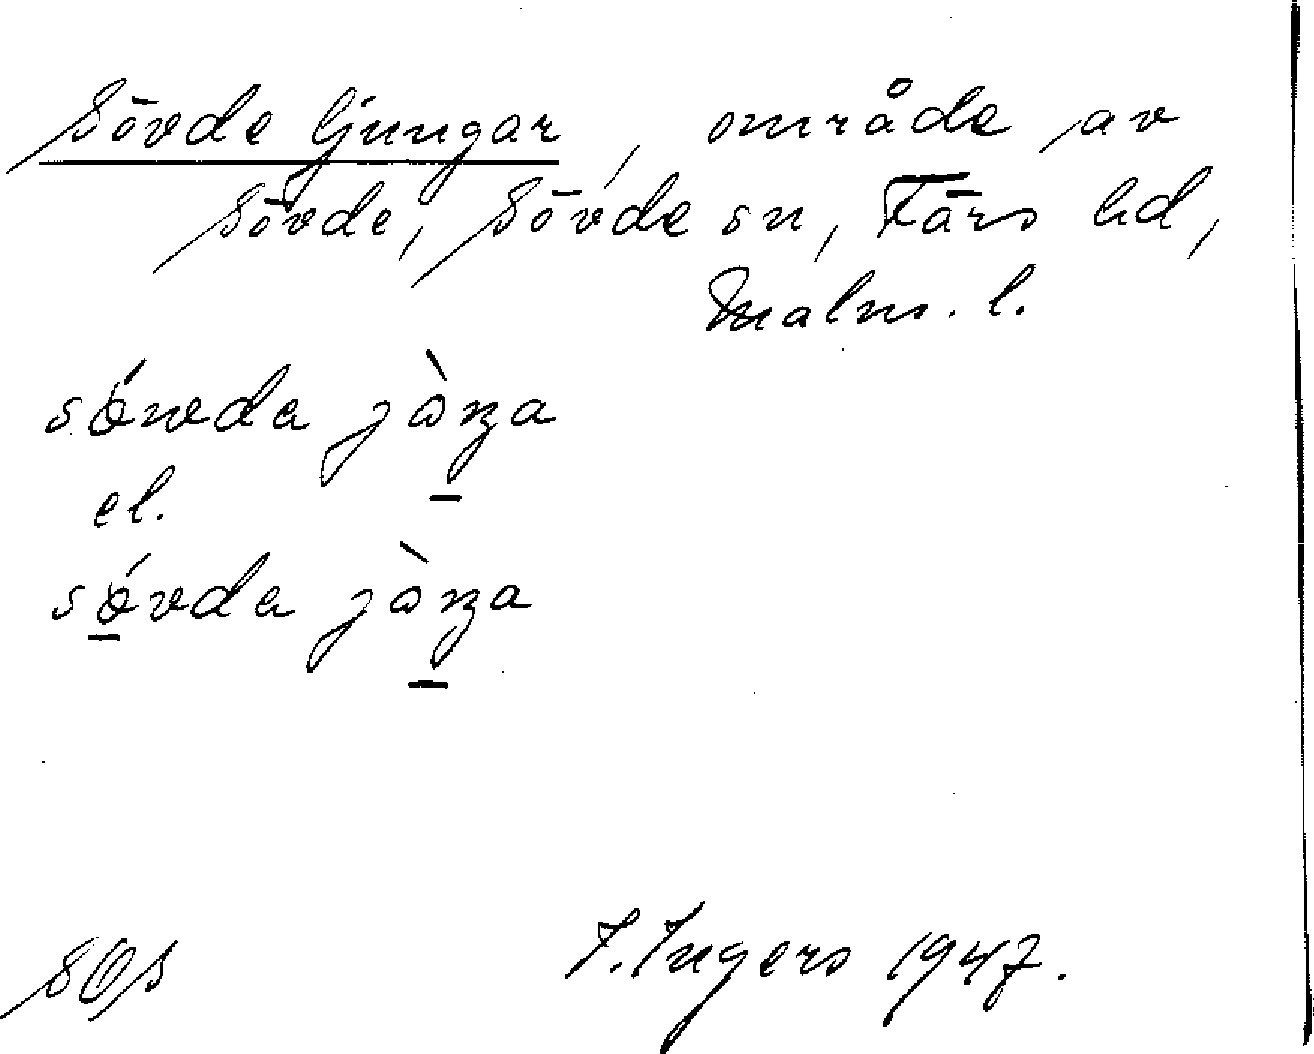 Sövde ljungar, område av
Sövde, Sövde sn, Färs hd,
Malm. l.
sówda jàŋa
el.
sóvda jàŋa
I. Ingers 1947.